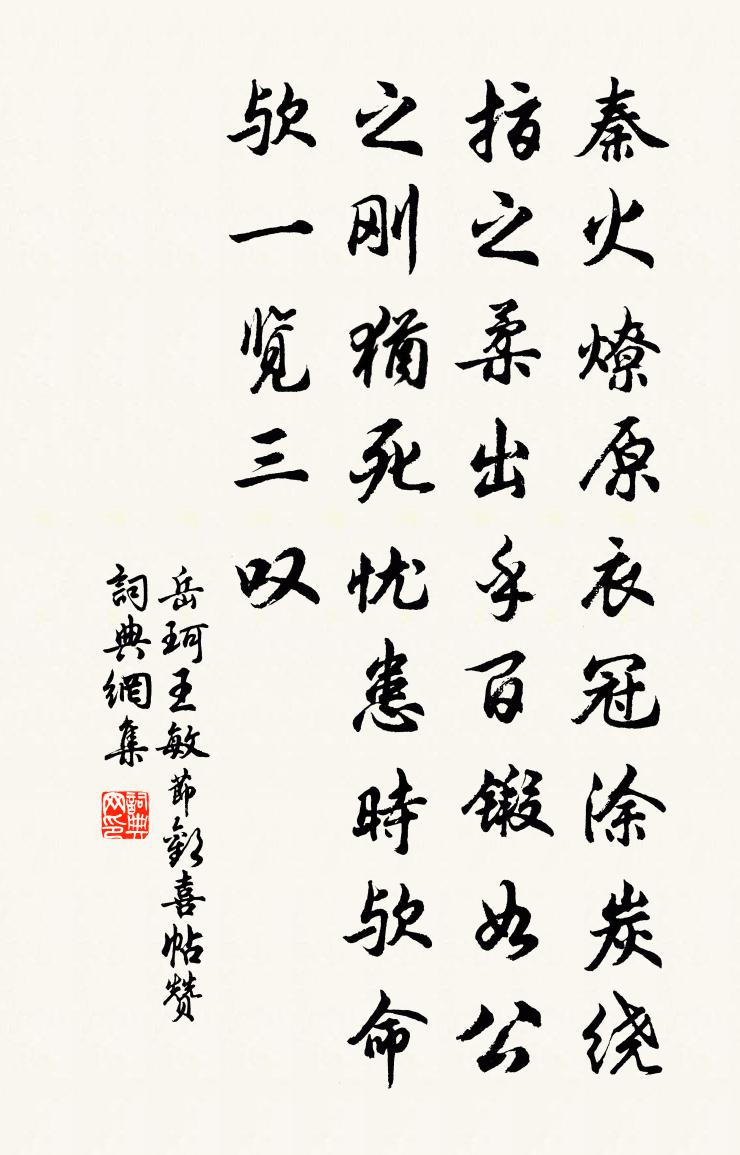 秦火燎原衣冠涂炭绕
指之柔出乎百锻如公
之刚犹死忧患时欤命
欤一览三叹
岳珂王敏节劝喜帖赞
詞典網集
詞典网印